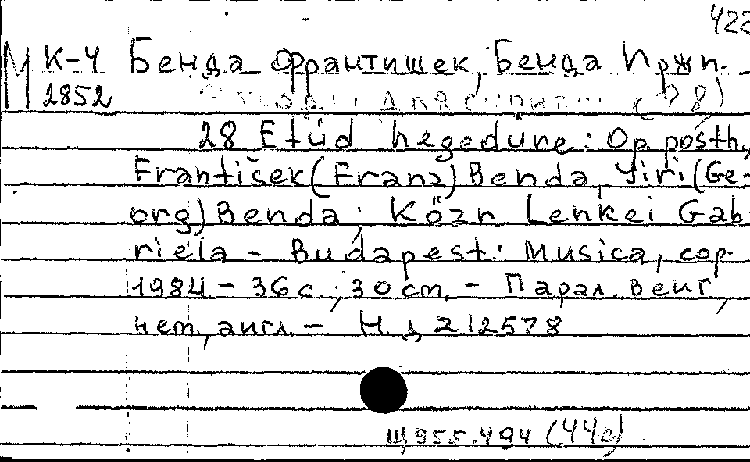 422
М К-4 Бенда Франтишек, Бенда Иржи.
2852 (28)
28 Etüd hegedüre: Op. posth.
František (Franz) Benda, Jiri (Ge-
org) Benda; Közr. Lenkei Gab
riela - Budapest: Musica, cop.
1984 - 36 с.; 30 cm. - Парал. венг.,
нем., англ. - Н. д. 212578
Щ955.494 (44е)